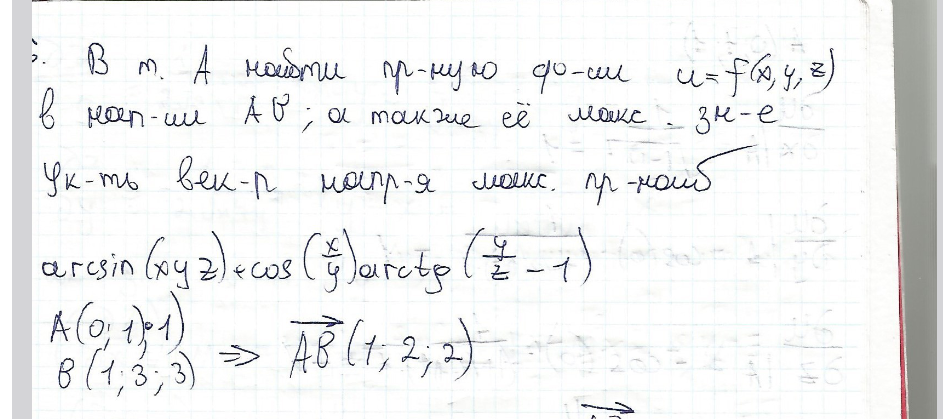 В т. A найти пр-ную ф-ии u=f(x,y,z)
в нап-ии AB; а также её макс. зн-е
Ук-ть век-р напр-я макс. пр-ной
arcsin(xyz)+cos(x/y)arctg(y/z - 1)
A(0;1;1)
B(1;3;3) ⇒ AB(1;2;2)